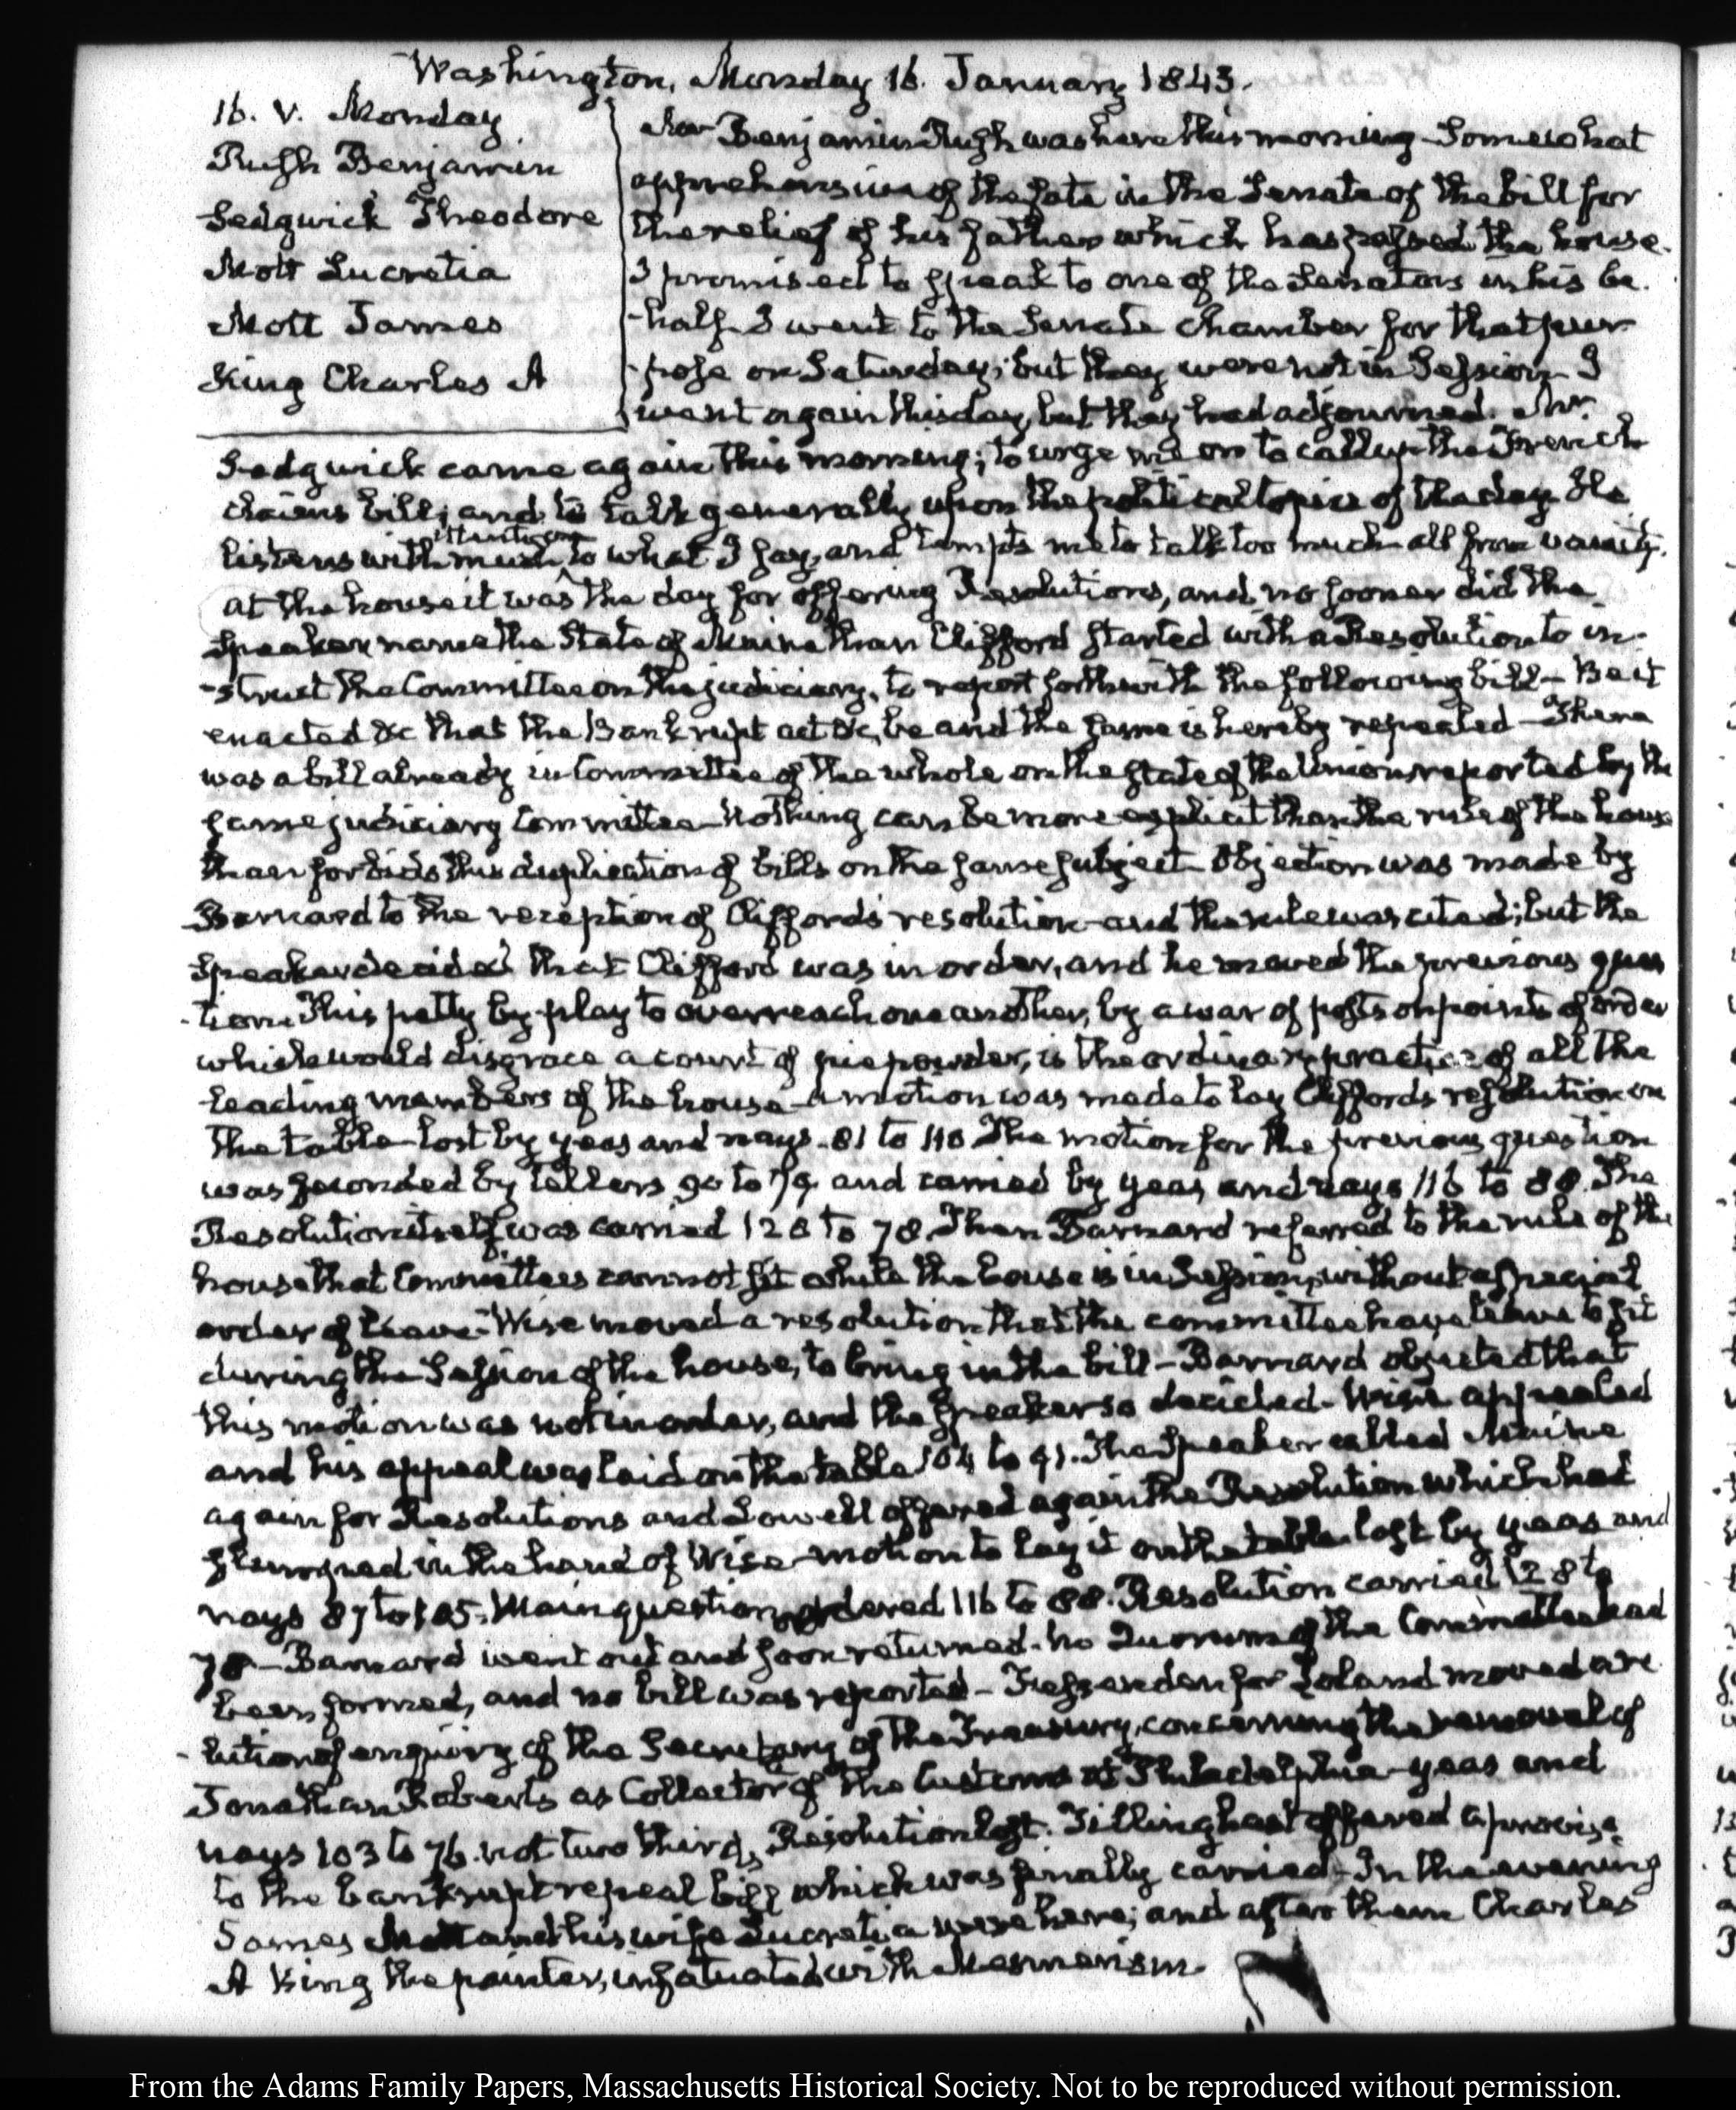 Washington, Monday 16. January 1843.
16. V. Monday
Rush Benjamin
Sedgwick Theodore
Mott Lucretia
Mott James
King Charles A
Mr Benjamin Rush was here this morning Somewhat
apprehensive of the fate in the Senate of the bill for
the relief of his father which has passed the house.
I promised to speak to one of the Senators in his be-
-half. I went to the Senate chamber for that pur-
-pose on Saturday; but they were not in Session. I
went again this day, but they had adjourned. Mr.
Sedgwick came again this morning; to urge me on to call up the French
claims bill; and to talk generally upon the political topics of the day. He
listens with much attention to what I say, and tempts me to talk too much all from vanity.
At the house it was the day for offering Resolutions, and no sooner did the
Speaker name the State of Maine than Clifford started with a Resolution to in-
-struct the Committee on the judiciary, to report forthwith the following bill - Be it
enacted &c that the Bankrupt act &c, be and the same is hereby repealed - There
was a bill already in Committee of the whole on the state of the Union, reported by the
same judiciary Committee - Nothing can be more explicit than the rule of the house
that forbids this duplication of bills on the same subject. Objection was made by
Barnard to the reception of Cliffords resolution - and the rule was cited; but the
Speaker decided that Clifford was in order, and he moved the previous ques
-tion. This petty by-play to overreach one another, by a war of posts on points of order
which would disgrace a court of piepowder, is the ordinary practice of all the
leading members of the house - A motion was made to lay Cliffords resolution on
the table - lost by yeas and nays - 81 to 110 The motion for the previous question
was seconded by tellers 90 to 79 and carried by yeas and nays 116 to 88. The
Resolution itself was carried 128 to 78. Then Barnard referred to the rule of the
house that Committees cannot sit while the house is in Session, without a special
order of leave - Wise moved a resolution that the committee have leave to sit
during the Session of the house, to bring in the bill - Barnard objected that
this motion was not in order, and the Speaker so decided - Wise appealed
and his appeal was laid on the table 104 to 91. The Speaker called Maine
again for Resolutions and Lowell offered again the Resolution which had
in the hand of Wise - motion to lay it on the table lost by yeas and
nays 87 to 105. Main question ordered 116 to 88. Resolution carried 128 to
78 - Barnard went out and soon returned - no Quorum of the Committee had
been formed, and no bill was reported - Fessenden for moved a re
-lution of enquiry of the Secretary of the Treasury, concerning the removal of
Jonathan Roberts as Collector of the Customs at Philadelphia - yeas and
nays 103 to 76. not two thirds, Resolution lost. Tillinghast offered a proviso
to the bankrupt repeal bill which was finally carried - In the evening
James Mott and his wife Lucretia were here; and after them Charles
A King the painter, infatuated with Mesmerism.
From the Adams Family Papers, Massachusetts Historical Society. Not to be reproduced without permission.